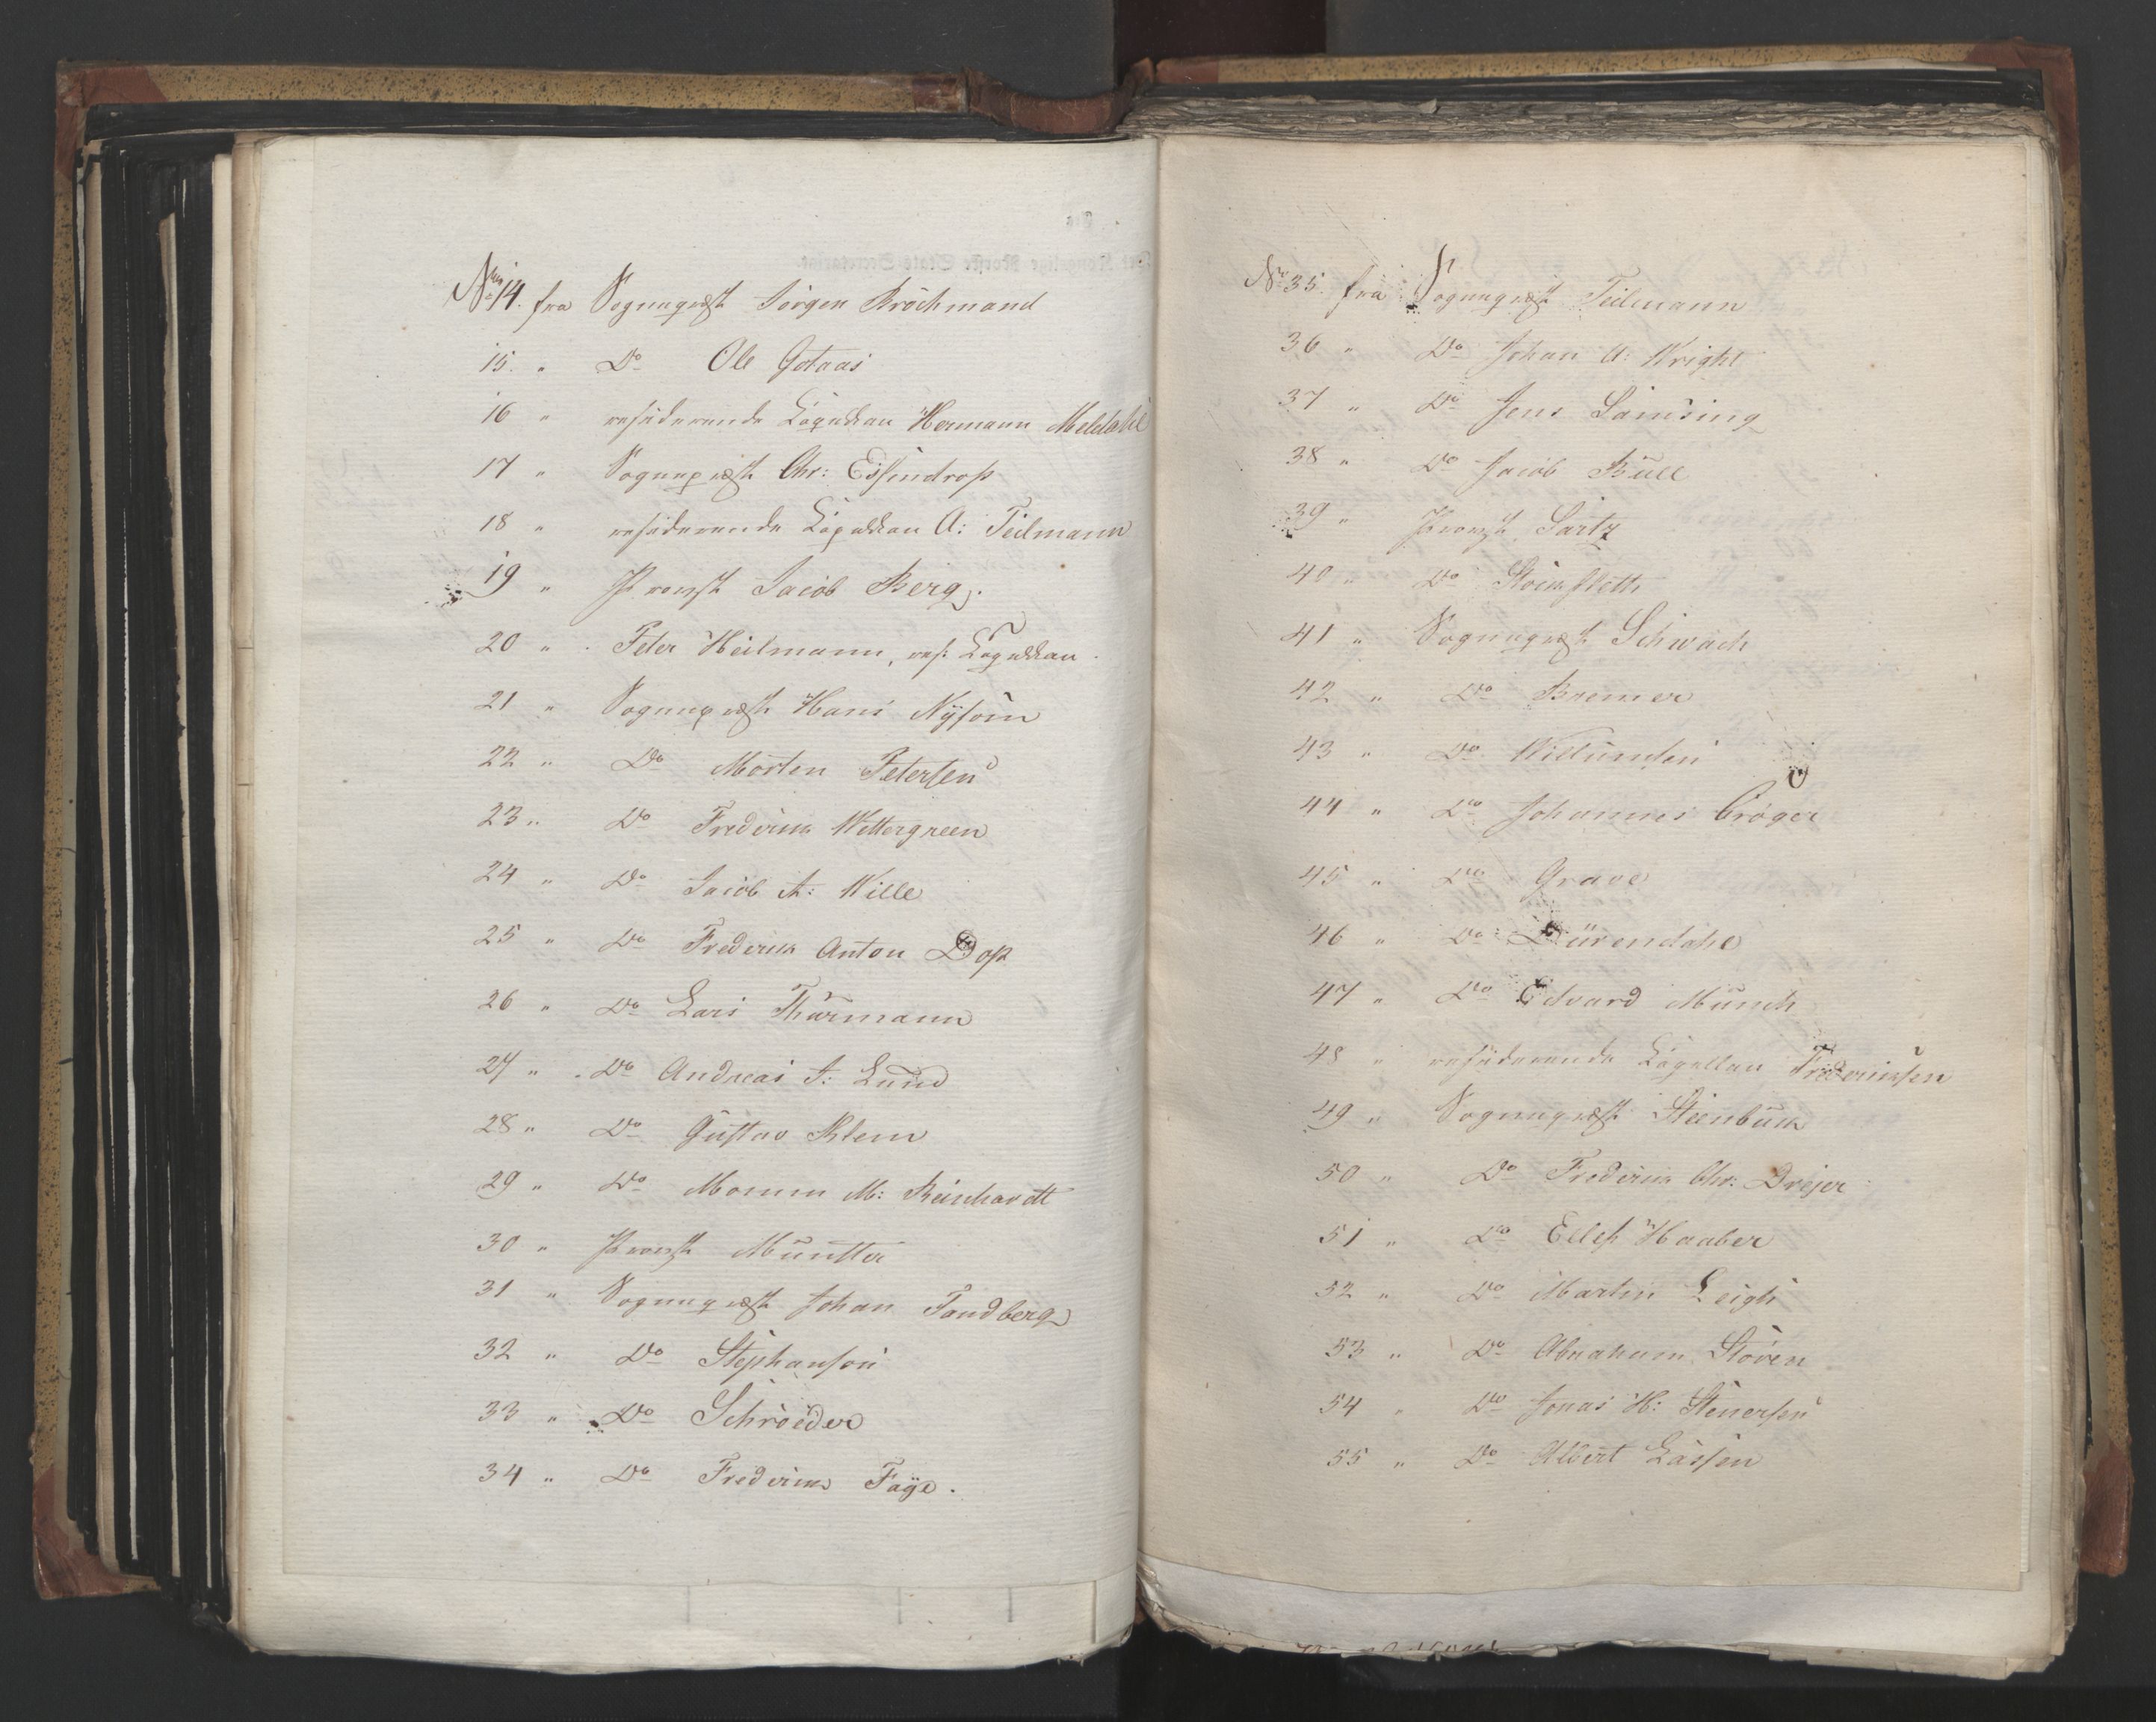 No 14. fra Sognepræst Jörgen Bröchmand
15. " Do Ole Gotaas
16 " residerende Kapellan Hermann Meldahl
17 " Sognepræst Chr: Essendrop
18 " residerende Kapellan A: Teilmann
19 " Provst Jacob Berg.
20 " Peter Heilmann, res: Kapellan
21 " Sognepræst Hans Nysom
22 " Do Morten Petersen
23 " Do Frederik Wettergreen
24 " Do Jacob A: Wille
25 " Do Frederik Anton Dop
26 " Do Lars Thurmann
27 " Do Andreas J: Lund
28 " Do Gustav Klem
29 " Do Momm M: Reinhardt
30 " Provst Munster
31 " Sognepræst Johan Tandberg
32 " Do Stephanson
33 " Do Schröeder
34 " Do Frederik Faye.
No 35. fra Sognepræst Teilmann
36 " Do Johan A: Wright
37 " Do Jens Samsing
38 " Do Jacob Bull
39 " Provst Sartz
40 " Do Stockfleth
41 " Sognepræst Schwach
42 " Do Bremer
43 " Do Willumsen
44 " Do Johannes Cröger
45 " Do Grave
46 " Do Dürendahl
47 " Do Edvard Munch
48 " residerende Kapellan Frederiksen
49 " Sognepræst Steenbuch
50 " Do Frederik Chr: Drejer
51 " Do Haaber
52 " Do Martin Leigh
53 " Do Abraham Stoven
54 " Do Jonas H: Stenersen
55 " Do Albert Lassen